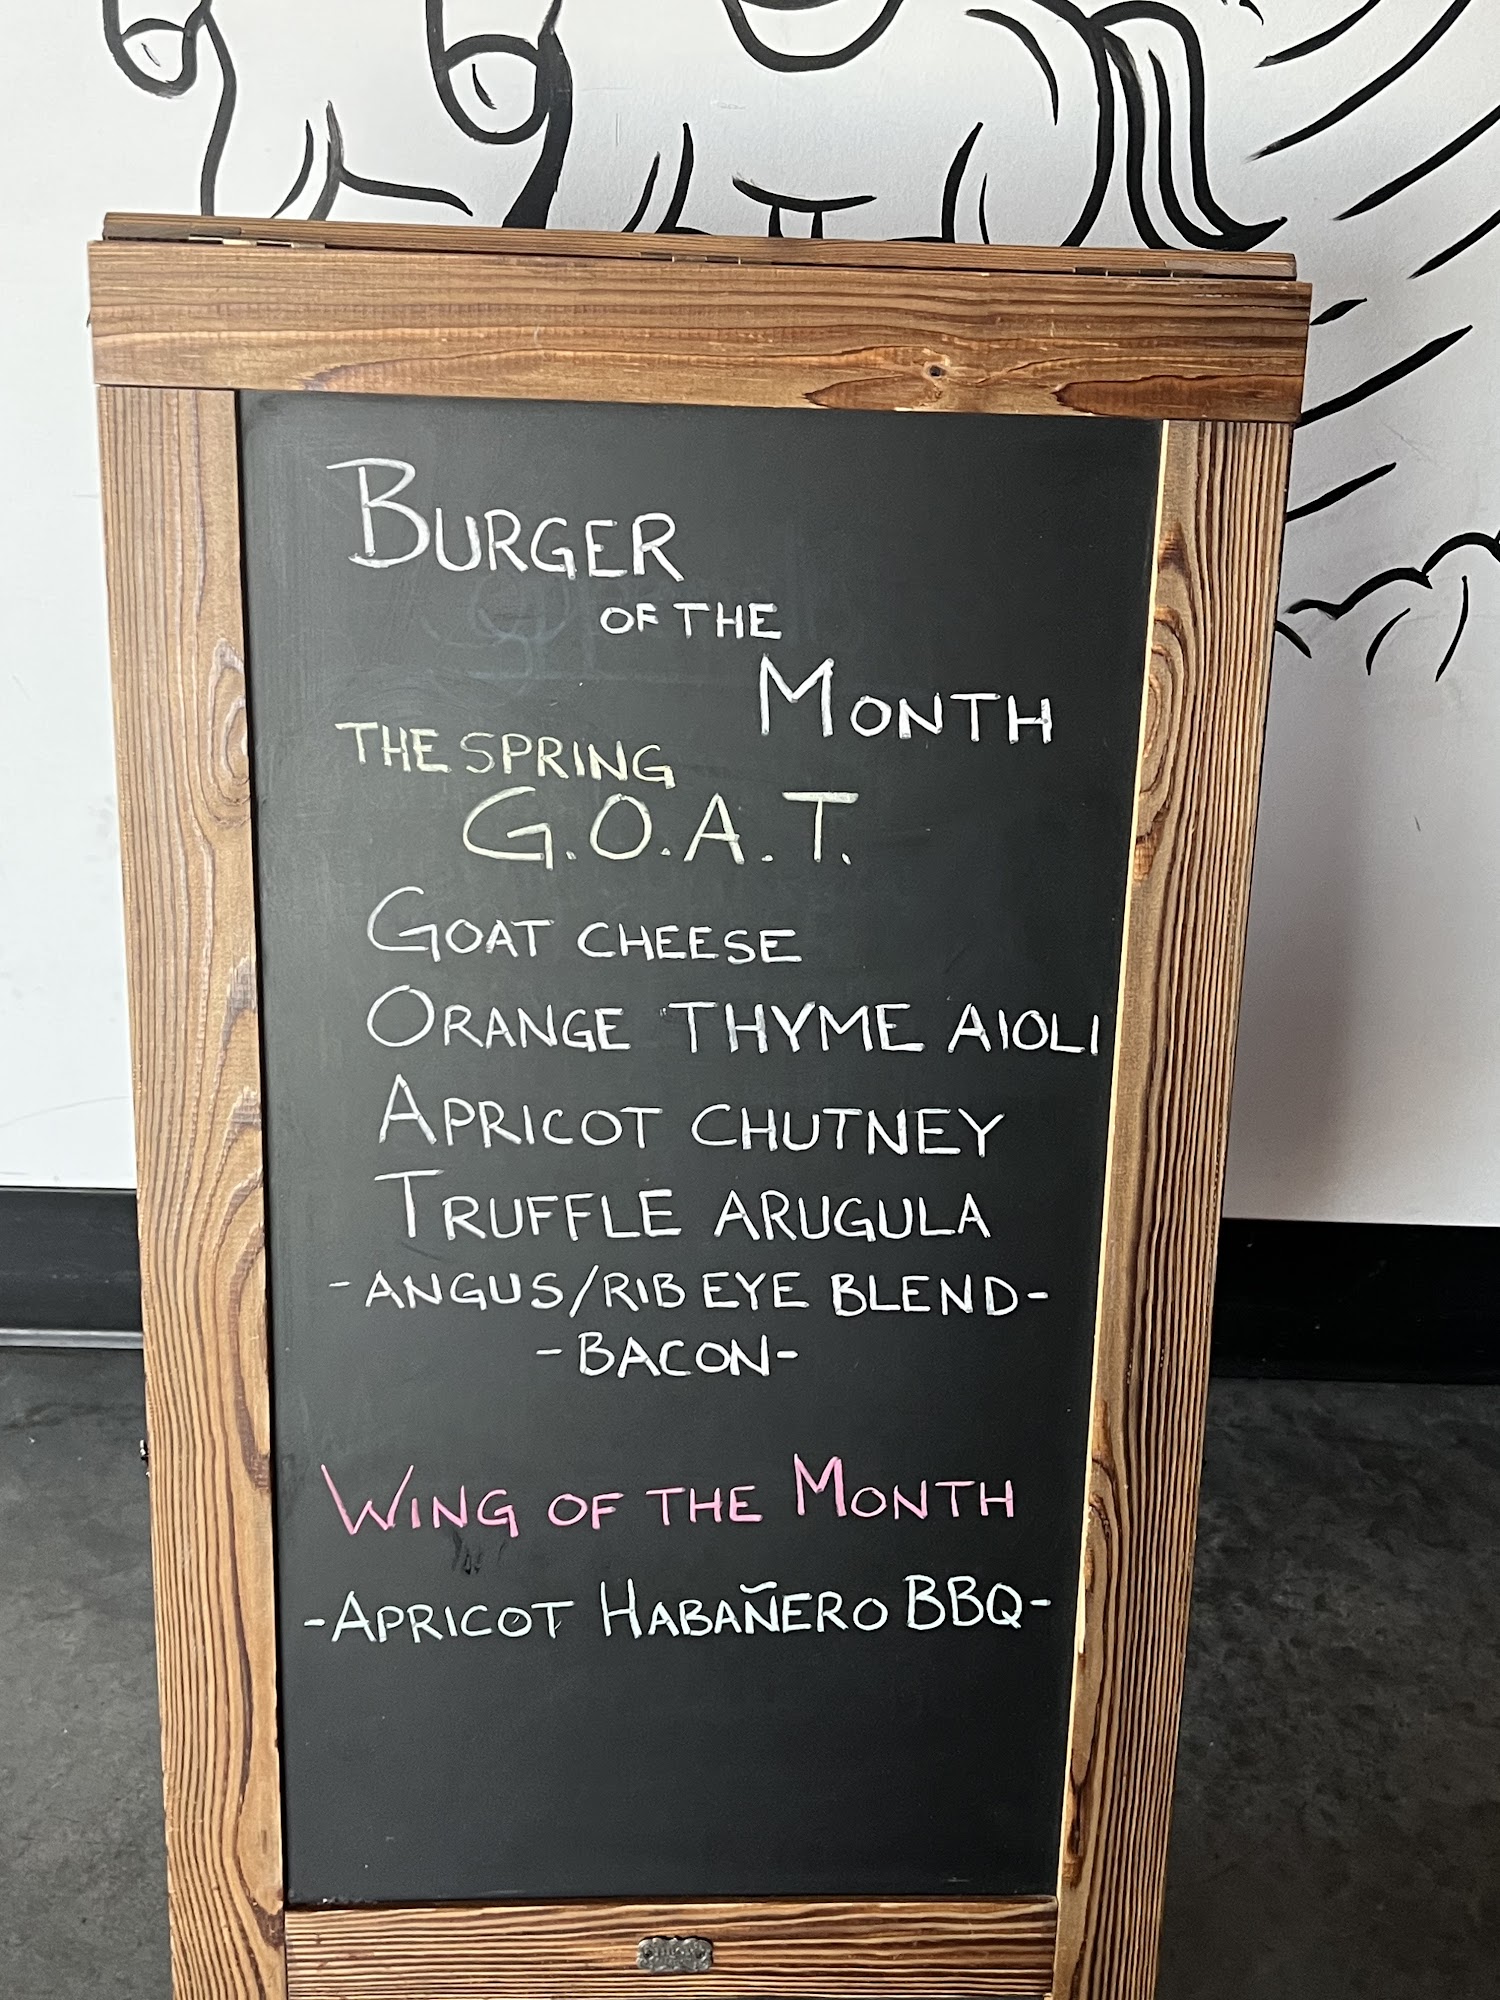 BURGER
OF THE
MONTH
THE SPRING
G.O.A.T.
GOAT CHEESE
ORANGE THYME AIOLI
APRICOT CHUTNEY
TRUFFLE ARUGULA
-ANGUS/RIB EYE BLEND-
-BACON-
WING OF THE MONTH
-APRICOT HABAÑERO BBQ-